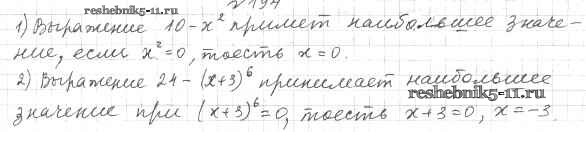 № 194
reshebnik5-11.ru
1) Выражение 10-x² примет наибольшее значе-
ние, если x²=0, тоесть x=0.
2) Выражение 24-(x+3)⁶ принимает наибольшее
reshebnik5-11.ru
значение при (x+3)⁶=0, тоесть x+3=0, x=-3.